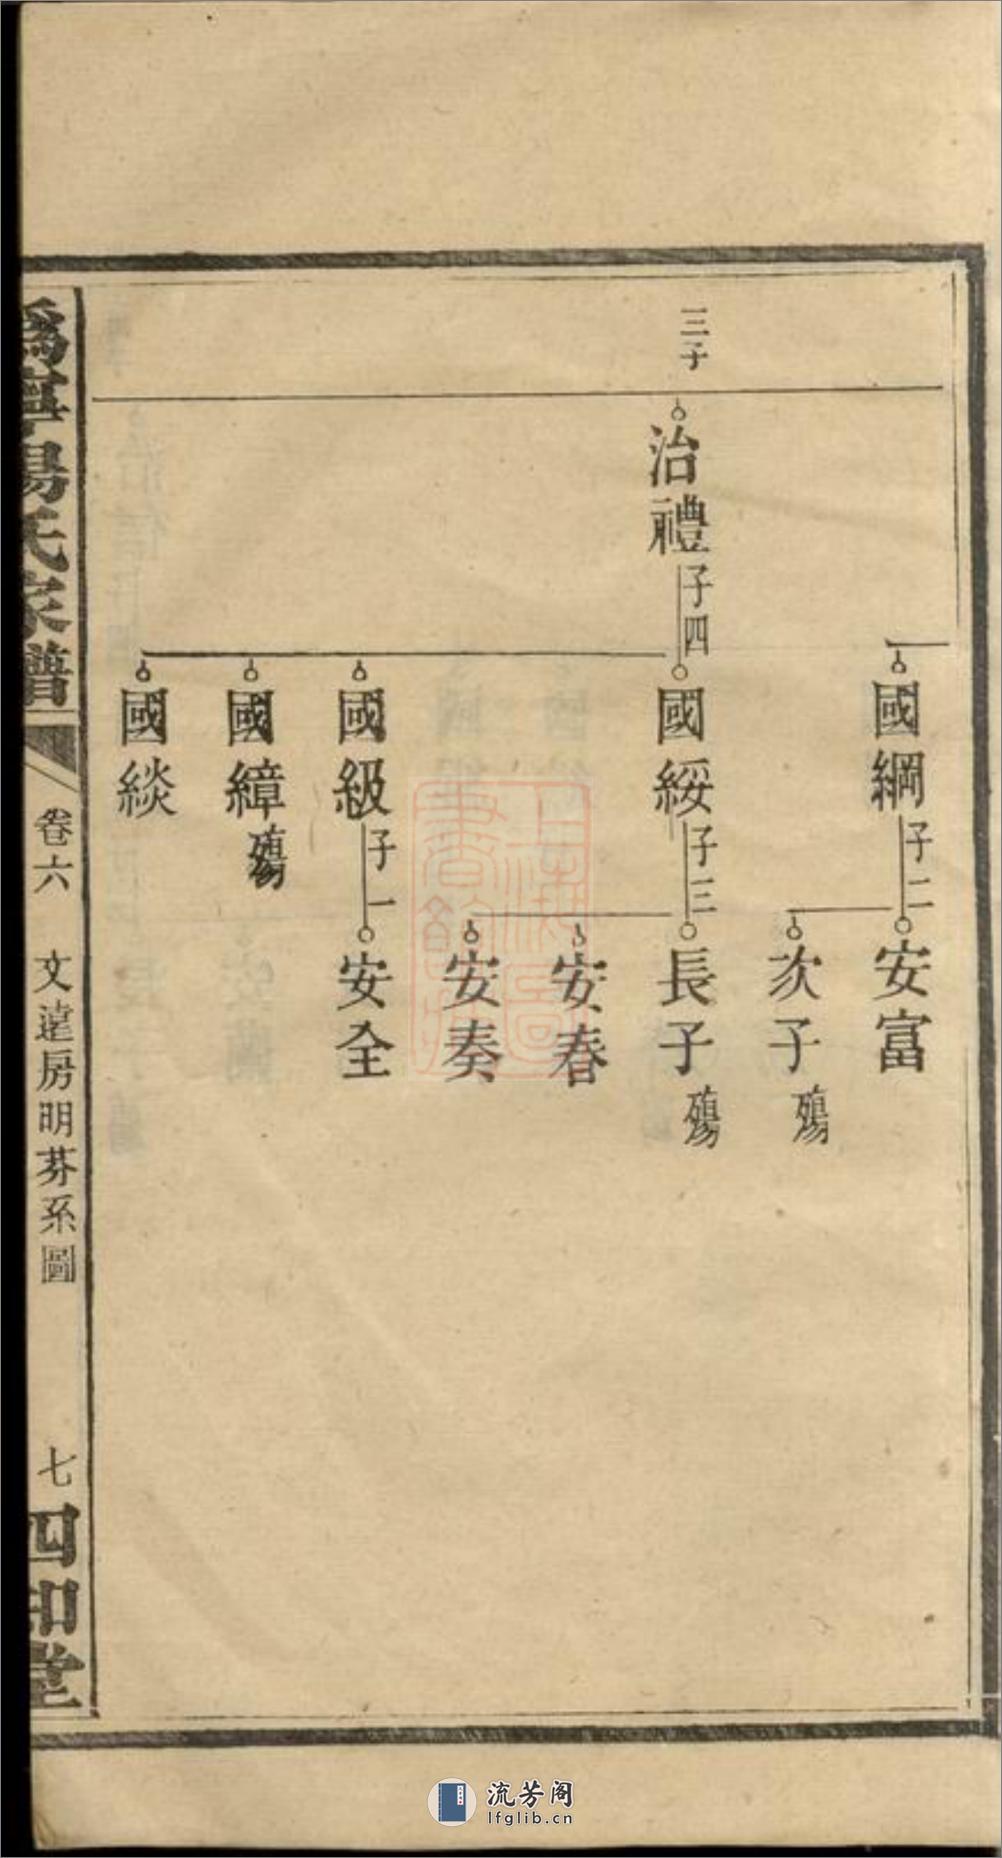 三子
國綱 子二
安富
次子 殤
治禮 子四
國綏 子三
長子 殤
安春
安奏
國級 子一
安全
國緯 殤
國緂
楊氏家譜
卷六 文遠房明芬系圖
七
四知堂
流芳阁
lfglib.cn